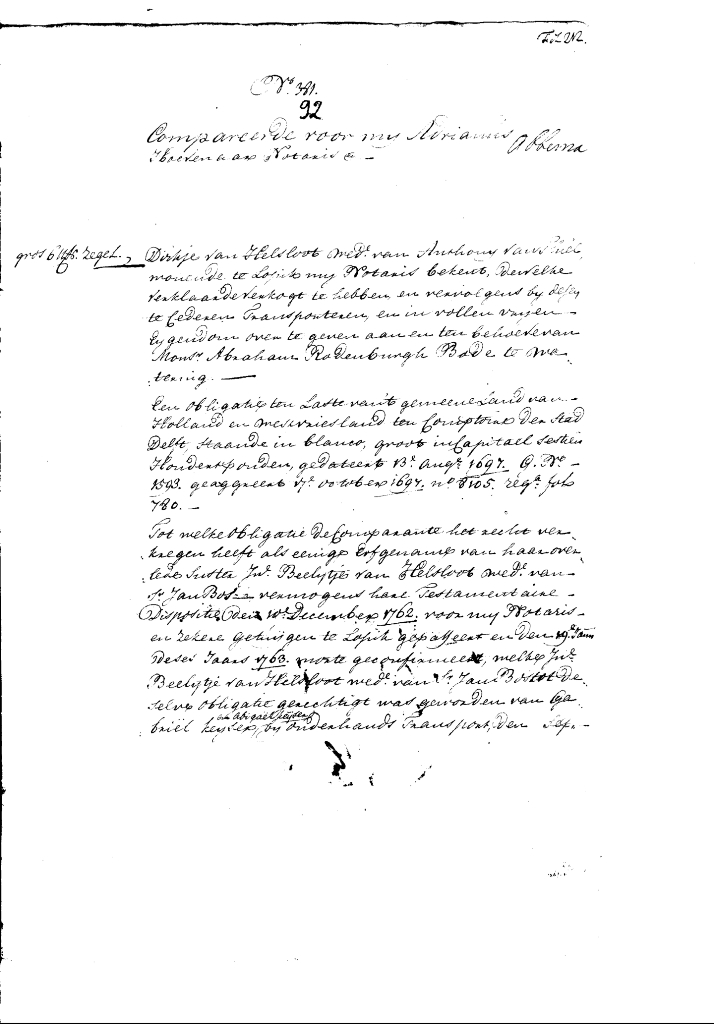 No. 381.
92
Compareerde voor my Adrianus
Notaris &
gros 6 zegel.
Dirkje van Helsloot wede. van Anthony van
wonende te Lopik my Notaris bekent, dewelke
verklaarde verkogt te hebben en vervolgens by desen
te Cederen Transporteren, en in vollen vryen
Eygendom over te geven aan en ten behoeve van
Monsr. Abraham Rodenburgh Bode te Wa-
tering.
Een obligatie ten Laste van't gemeene Land van
Holland en Westvriesland ten Comptoire der Stad
Delft, staande in blanco, groot in Capitael seshien
Hondert ponden, gedateert 13e. augt. 1697. G. No.
1593. geaggreert 17e. october 1697. no. 8105. regr. fol.
780.
Tot welke obligatie de Comparante het recht ver-
kregen heeft als eenige Erfgename van haar over-
lede Suster Jue. Beelytje van Helsloot wede. van
Sr. Jan Bos vermogens hare Testamentaire
Dispositie den 10e. December 1762. voor my Notaris
en zekere getuygen te Lopik gepasseert en den 19e. Janu
deses Jaars 1763. morte geconfirmeert, welke Jue.
Beelytje van Helsloot wede. van Sr. Jan Bos tot de-
selve obligatie gerechtigt was geworden van Ga-
en Abigael Keyser
briël Keyser, by onderhands Transport, den